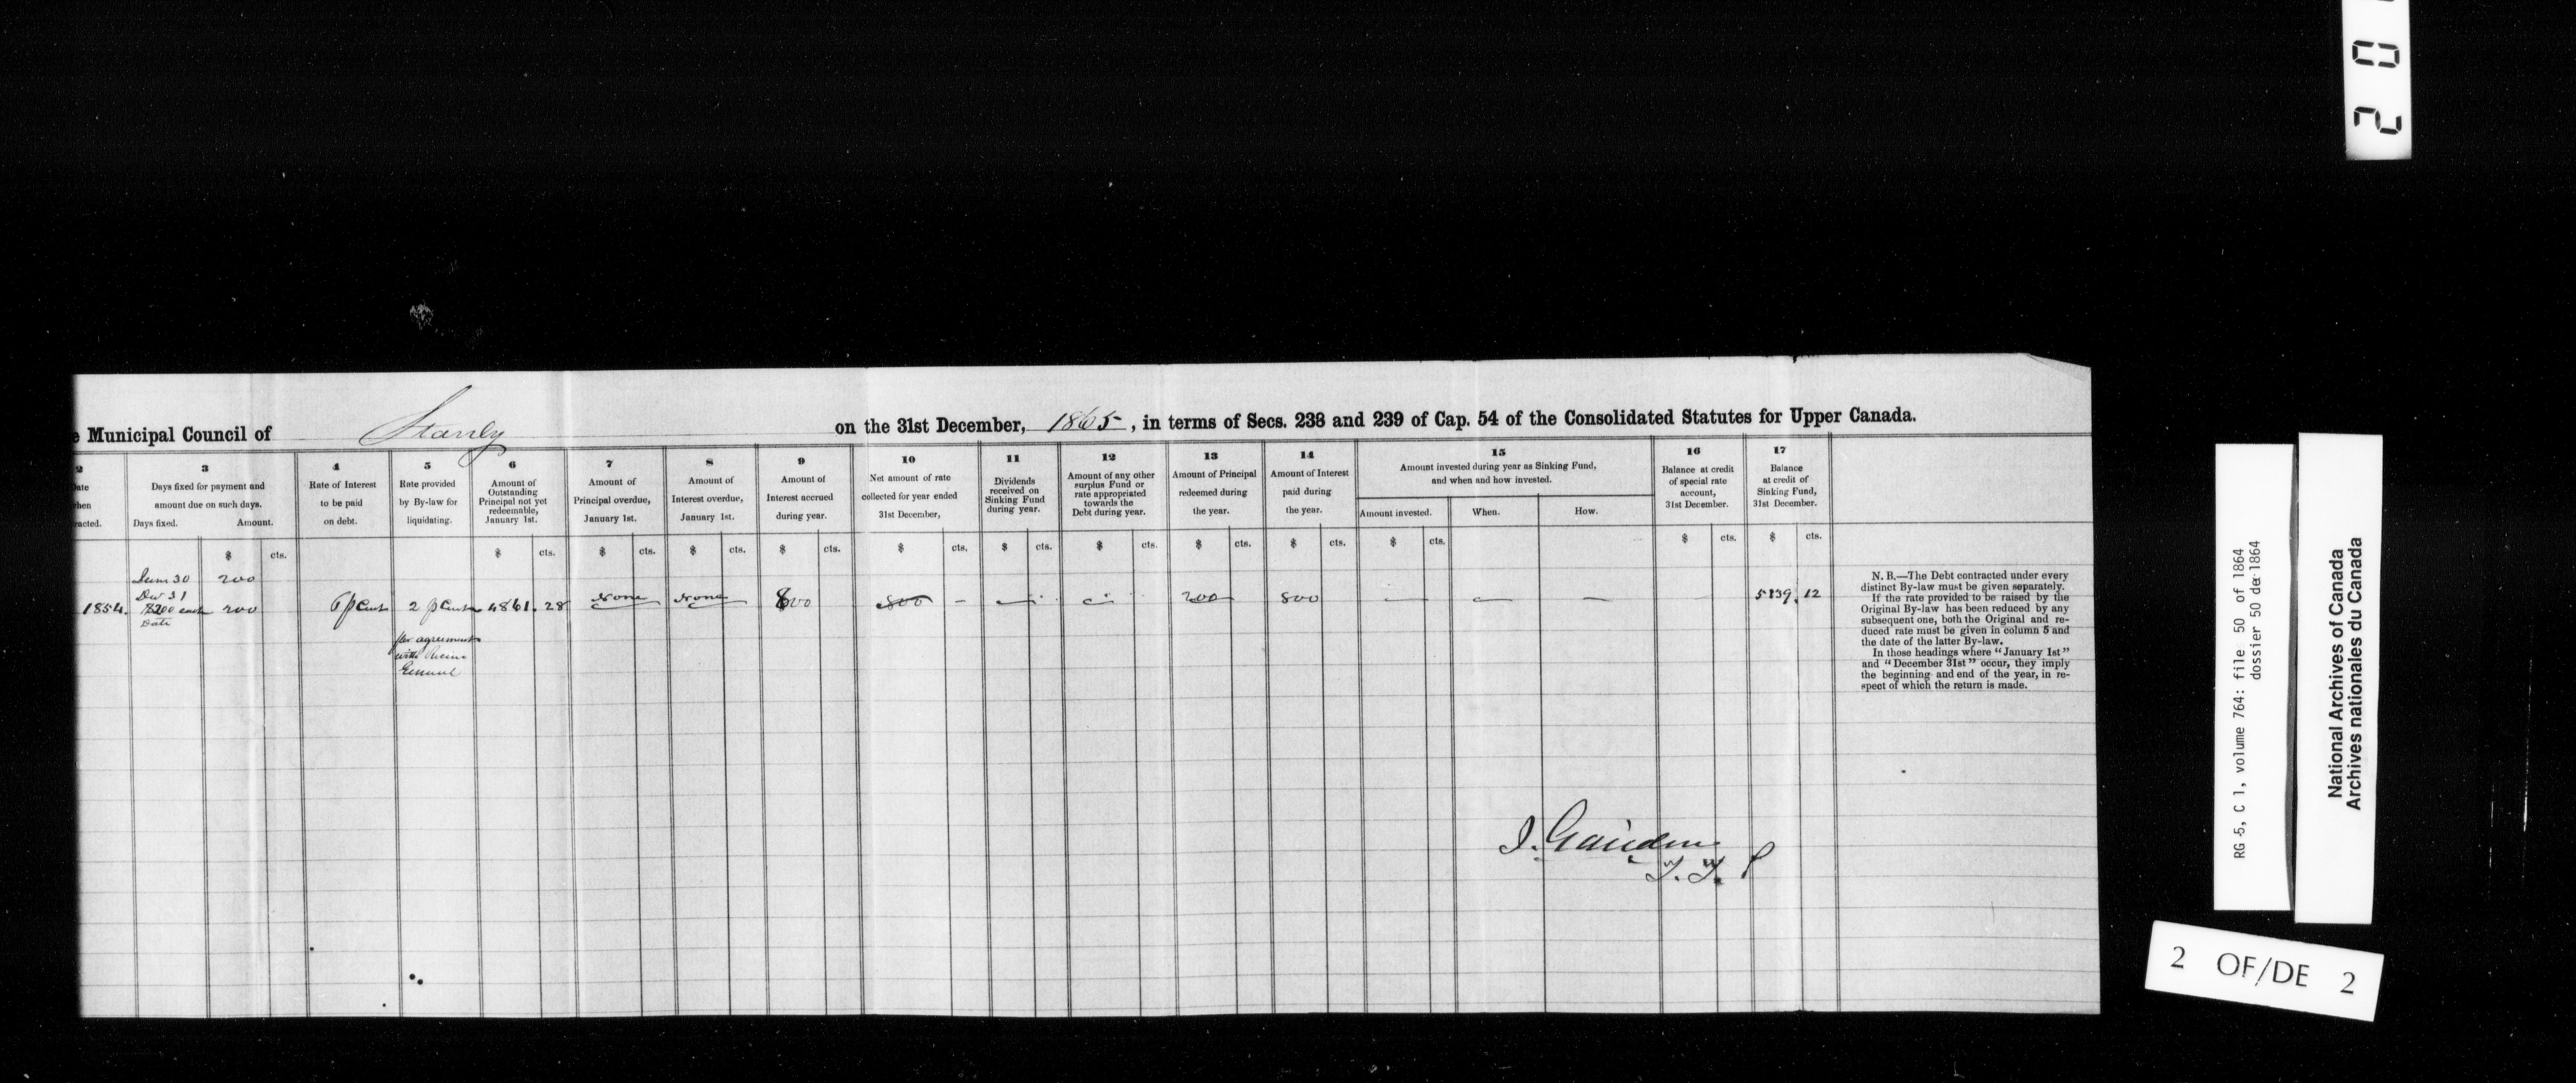 2 0
e Municipal Council of Stanly on the 31st December, 1865, in terms of Secs. 238 and 239 of Cap. 54 of the Consolidated Statutes for Upper Canada.
2
ate
hen
racted.
3
Days fixed for payment and
amount due on such days.
Days fixed. Amount.
4
Rate of Interest
to be paid
on debt.
5
Rate provided
by By-law for
liquidating.
6
Amount of
Outstanding
Principal not yet
redeemable,
January 1st.
7
Amount of
Principal overdue,
January 1st.
8
Amount of
Interest overdue,
January 1st.
9
Amount of
Interest accrued
during year.
10
Net amount of rate
collected for year ended
31st December,
11
Dividends
received on
Sinking Fund
during year.
12
Amount of any other
surplus Fund or
rate appropriated
towards the
Debt during year.
13
Amount of Principal
redeemed during
the year.
14
Amount of Interest
paid during
the year.
15
Amount invested during year as Sinking Fund,
and when and how invested.
Amount invested. When. How.
16
Balance at credit
of special rate
account,
31st December.
17
Balance
at credit of
Sinking Fund,
31st December.
$ cts. $ cts. $ cts. $ cts. $ cts. $ cts. $ cts. $ cts. $ cts. $ cts. $ cts. $ cts. $ cts.
June 30 200
Dec 31
1854. $200 each 200 6 p Cent 2 p Cent 4861.28 None None 800 800 – — — 200 800 — — — 5139.12
Date
per agreement
with Receiver
General
N. B.—The Debt contracted under every
distinct By-law must be given separately.
If the rate provided to be raised by the
Original By-law has been reduced by any
subsequent one, both the Original and re-
duced rate must be given in column 5 and
the date of the latter By-law.
In those headings where "January 1st"
and "December 31st" occur, they imply
the beginning and end of the year, in re-
spect of which the return is made.
RG 5, C 1, volume 764: file 50 of 1864
dossier 50 de 1864
National Archives of Canada
Archives nationales du Canada
2 OF/DE 2